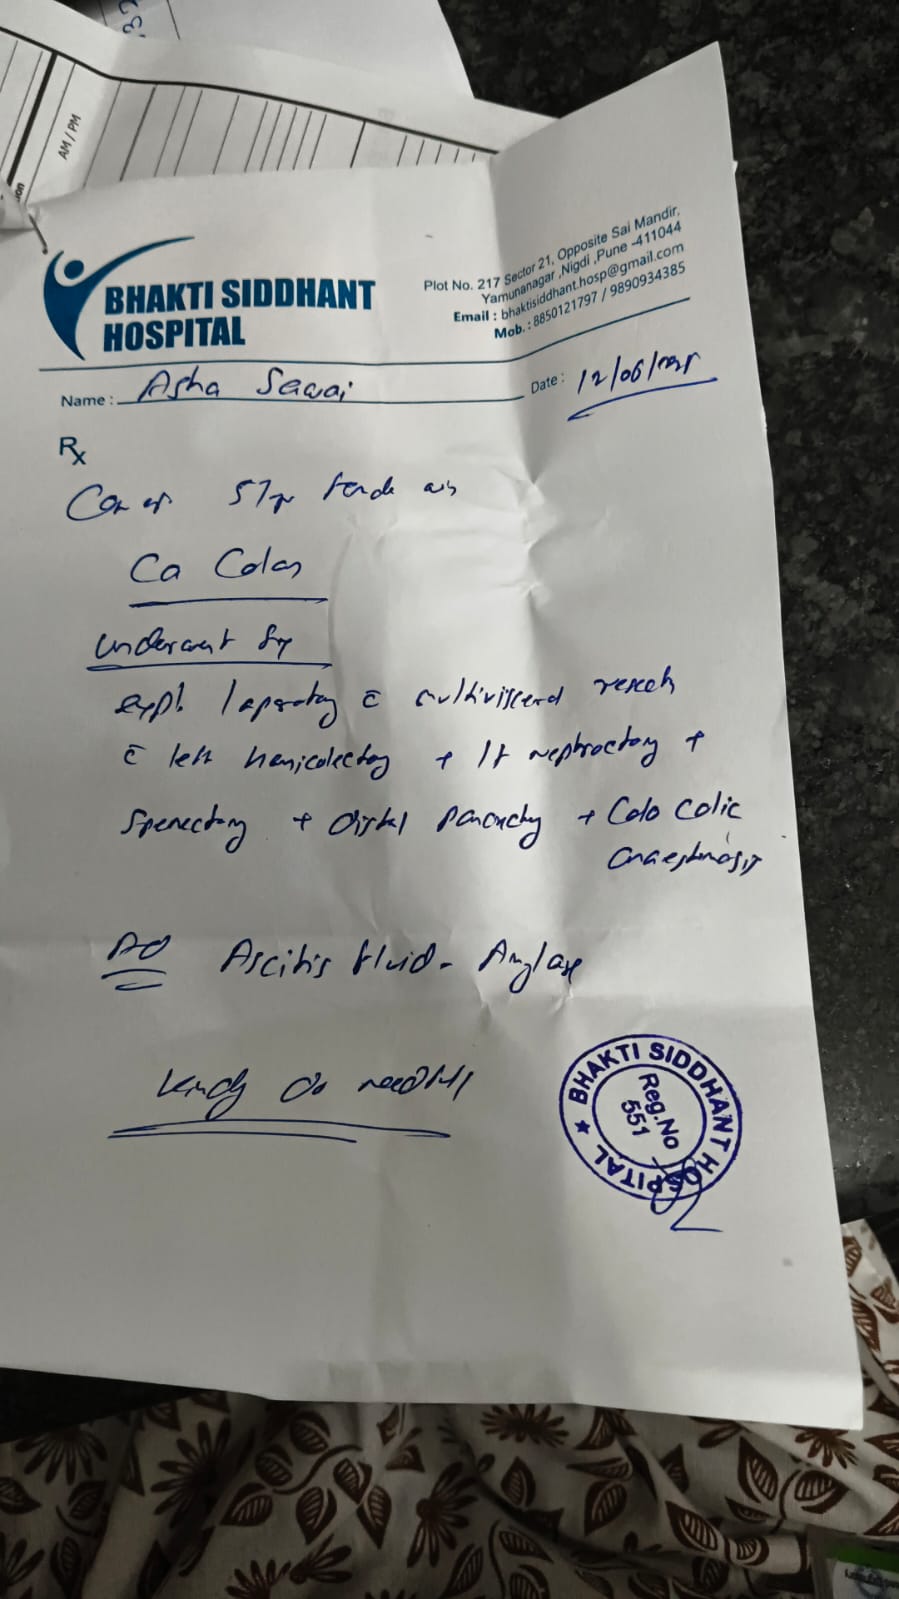 32
AM / PM
BHAKTI SIDDHANT
HOSPITAL
Plot No. 217 Sector 21, Opposite Sai Mandir,
Yamunanagar ,Nigdi ,Pune -411044
Email : bhaktisiddhant.hosp@gmail.com
Mob. : 8850121797 / 9890934385
Name : Asha Sawai
Date : 12/06/
Rx
57yr
Ca Colon
underwent
expl. laparotomy c̄ multivisceral
c̄ left hemicolectomy + lt nephrectomy +
Spenectomy + distal + Colo colic
Ascitis fluid - Amylase
Kindly do needful
BHAKTI SIDDHANT HOSPITAL ★
Reg.No
551